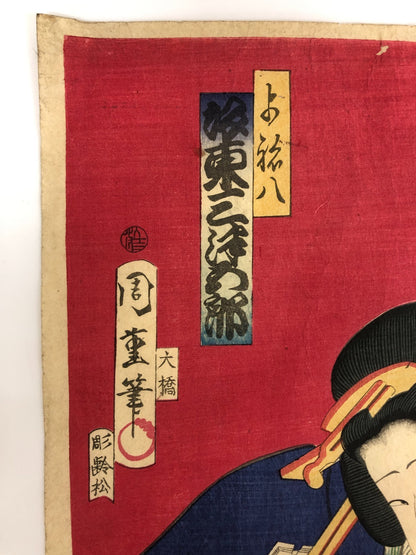 与祢八
坂東三津五郎
周重筆
大橋
彫齢松